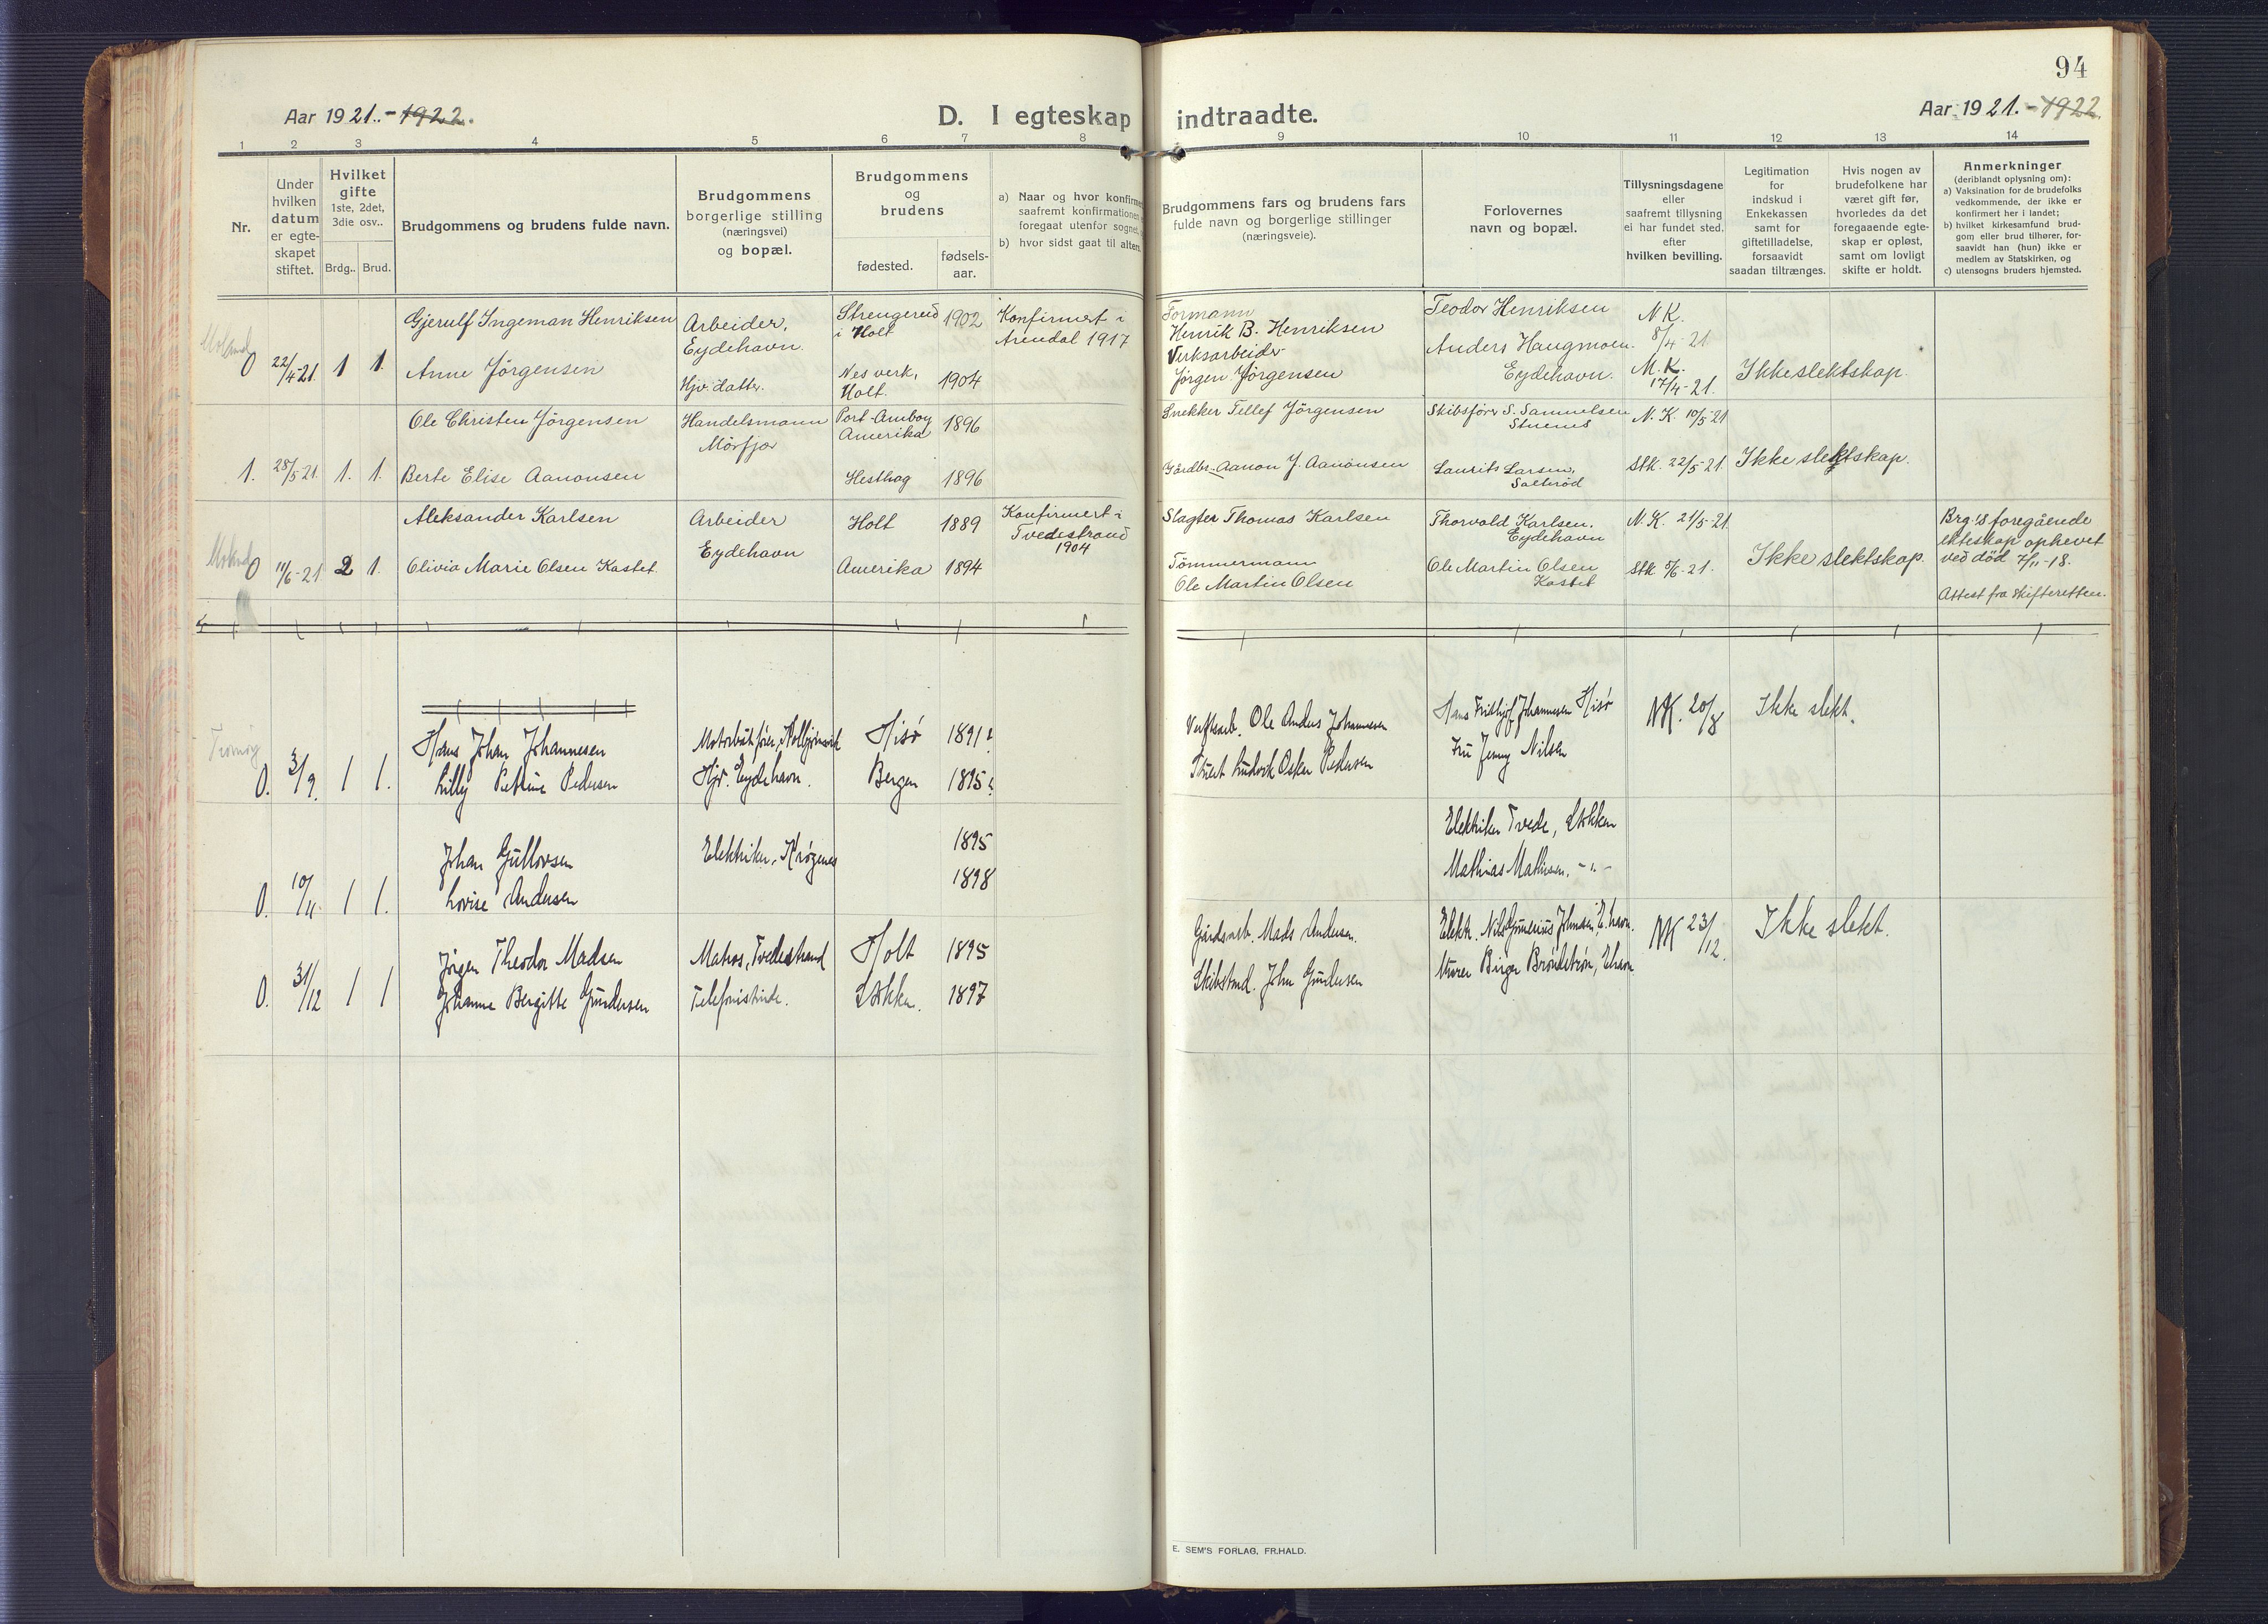 94
Aar 1921. - 1922.
D. I egteskap indtraadte.
Aar 1921. - 1922.
1 2 3 4 5 6 7 8 9 10 11 12 13 14
Nr.
Under hvilken datum er egteskapet stiftet.
Hvilket gifte
1ste, 2det, 3die osv..
Brdg.. Brud.
Brudgommens og brudens fulde navn.
Brudgommens borgerlige stilling
(næringsvei)
og bopæl.
Brudgommens og brudens
fødested.
fødsels-
aar.
a) Naar og hvor konfirme
saafremt konfirmationen
foregaat utenfor sognet,
b) hvor sidst gaat til alters.
Brudgommens fars og brudens fars
fulde navn og borgerlige stillinger
(næringsveie).
Forlovernes
navn og bopæl.
Tillysningsdagene
eller
saafremt tillysning
ei har fundet sted,
efter
hvilken bevilling.
Legitimation
for
indskud i
Enkekassen
samt for
giftetilladelse,
forsaavidt
saadan tiltrænges.
Hvis nogen av
brudefolkene har
været gift før,
hvorledes da det
foregaaende egte-
skap er opløst,
samt om lovligt
skifte er holdt.
Anmerkninger
(deriblandt oplysning om):
a) Vaksination for de brudefolks
vedkommende, der ikke er
konfirmert her i landet;
b) hvilket kirkesamfund brud-
gom eller brud tilhører, for-
saavidt han (hun) ikke er
medlem av Statskirken, og
c) utensogns bruders hjemsted.
Moland
0 22/4-21. 1 1.
Gjerulf Ingeman Henriksen
Anne Jörgensen
Arbeider,
Eydehavn.
Hjv. datter.
Strengereid
i Holt
1902
Nes verk,
Holt.
1904
Konfirmert i
Arendal 1917
Formann
Henrik B. Henriksen
Verksarbeider
Jörgen Jörgensen
Teodor Henriksen
Anders Haugmoen.
Eydehavn.
N.K.
8/4-21
M.K.
17/4-21.
Ikke slektskap.
1. 28/5-21 1. 1.
Ole Christen Jörgensen
Berte Elise Aanonsen
Handelsmann
Mörfjær
Port-Amboy
Amerika
1896
Hesthag 1896
Snekker Tellef Jörgensen
Gårdbr. Aanon J. Aanonsen
Skibsförer S. Samuelsen
Stuenes
Laurits Larsen,
Salteröd
N.K. 10/5-21
Stk. 22/5-21.
Ikke slektskap.
Moland
0 11/6-21 2 1.
Aleksander Karlsen
Olivia Marie Olsen Kastet.
Arbeider
Eydehavn
Holt 1889
Amerika 1894
Konfirmert i
Tvedestrand
1904
Slagter Thomas Karlsen
Tömmermann
Ole Martin Olsen
Thorvald Karlsen.
Eydehavn
Ole Martin Olsen
Kastet
N.K. 21/5-21.
Stk. 5/6-21.
Ikke slektskap.
Brg.'s foregående
ekteskap ophevet
ved död 7/11-18.
Attest fra skifteretten.
Tromöy
0. 3/9. 1 1.
Hans Johan Johannesen
Lilly Petrine Pedersen
Motorbåtförer,
Hjv. Eydehavn.
Hisö 1891
Bergen 1895
Ole Anders Johannesen
Ludvik Oskar Pedersen
Hans Fridthjof Johannesen Hisö
Fru Jenny Nilsen
NK. 20/8
Ikke slekt.
0. 10/11. 1 1.
Johan Gullovsen
Lovise Andersen
Elektriker, Krögenes
1895
1898
Elektriker Tvede, Stokken
Mathias Mathisen, -"-
0. 31/12 1 1
Jörgen Theodor Madsen
Johanne Bergitte Gundersen
Matros, Tvedestrand
Telefonistinde.
Holt 1895
Stokken. 1897
Gårdsarb. Mads Andersen.
Skibstmd. John Gundersen
Elektr. Nils Gunerius Johnsen, E.havn.
Murer Birger Bröndström, E.havn
NK 23/12.
Ikke slekt.
E. SEM'S FORLAG, FR.HALD.